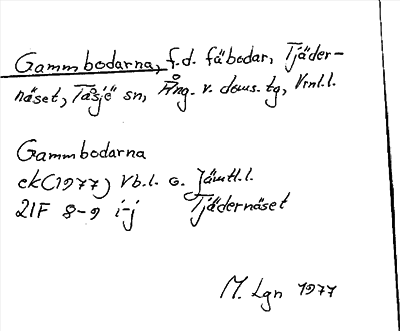 Gammbodarna, f.d. fäbodar, Tjäder-
näset, Tåsjö sn, Ång. v. doms. tg, Vrnl.l.
Gammbodarna
ek(1977) Vb.l. o. Jämtl.l.
21F 8-9 i-j Tjädernäset
M. Lgn 1977